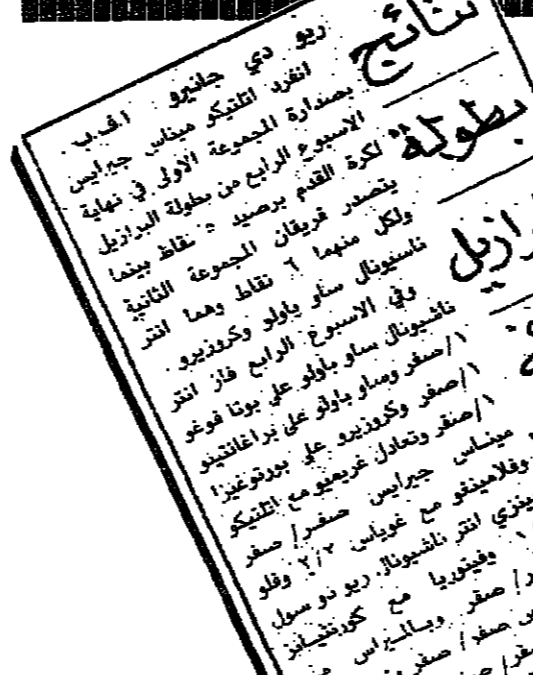 نتائج
بطولة
ريو دي جانيرو . ا.ف.ب .
انفرد اتلتيكو ميناس جيرايس
بصدارة المجموعة الاولى في نهاية
الاسبوع الرابع من بطولة البرازيل
لكرة القدم برصيد ٥ نقاط بينما
يتصدر فريقان المجموعة الثانية
ولكل منهما ٦ نقاط وهما انتر
ناسيونال ساو باولو وكروزيرو .
وفي الاسبوع الرابع فاز انتر
ناشيونال ساو باولو على بوتا فوغو
١/صفر وساو باولو على براغانتينو
١/صفر وكروزيرو على بورتوغيزا
١/صفر وتعادل غريميو مع اتلتيكو
ميناس جيرايس صفر/ صفر
وفلامينغو مع غوياس ٢/٢ وفلو
انتر ناشيونال ريو دو سول
وفيتوريا مع كورنثيانز
صفر وبالميراس
صفر/ صفر